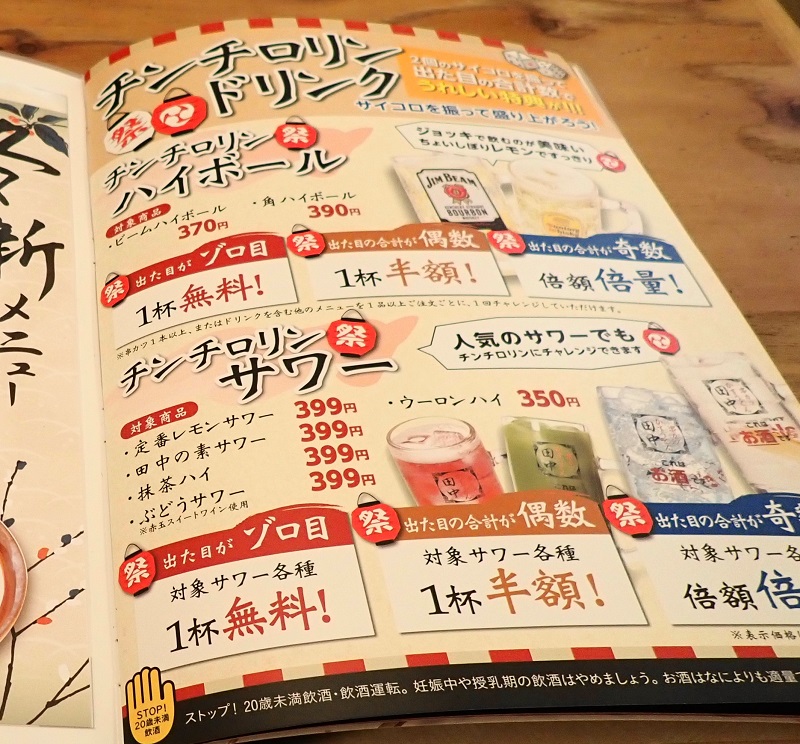 チンチロリン
ドリンク
祭
2個のサイコロを振って
出た目の合計数で
うれしい特典が!!
サイコロを振って盛り上がろう!
チンチロリン
ハイボール
祭
ジョッキで飲むのが美味い
ちょいしぼりレモンですっきり
JIM BEAM
BOURBON
対象商品
・ビームハイボール 370円
・角ハイボール 390円
祭 出た目が ゾロ目
1杯無料!
祭 出た目の合計が 偶数
1杯半額!
祭 出た目の合計が 奇数
倍額倍量!
※串カツ1本以上、またはドリンクを含む他のメニューを1品以上ご注文ごとに、1回チャレンジしていただけます。
チンチロリン
サワー
祭
人気のサワーでも
チンチロリンにチャレンジできます
対象商品
・定番レモンサワー 399円
・田中の素サワー 399円
・抹茶ハイ 399円
・ぶどうサワー 399円
※赤玉スイートワイン使用
・ウーロンハイ 350円
田中
田中
これは
田中
これは
お酒
田中
これは
お酒
祭 出た目が ゾロ目
対象サワー各種
1杯無料!
祭 出た目の合計が 偶数
対象サワー各種
1杯半額!
祭 出た目の合計が 奇数
対象サワー各
倍額倍
※表示価格
STOP!
20歳未満
飲酒
ストップ!20歳未満飲酒・飲酒運転。妊娠中や授乳期の飲酒はやめましょう。お酒はなによりも適量で
新
メニュー